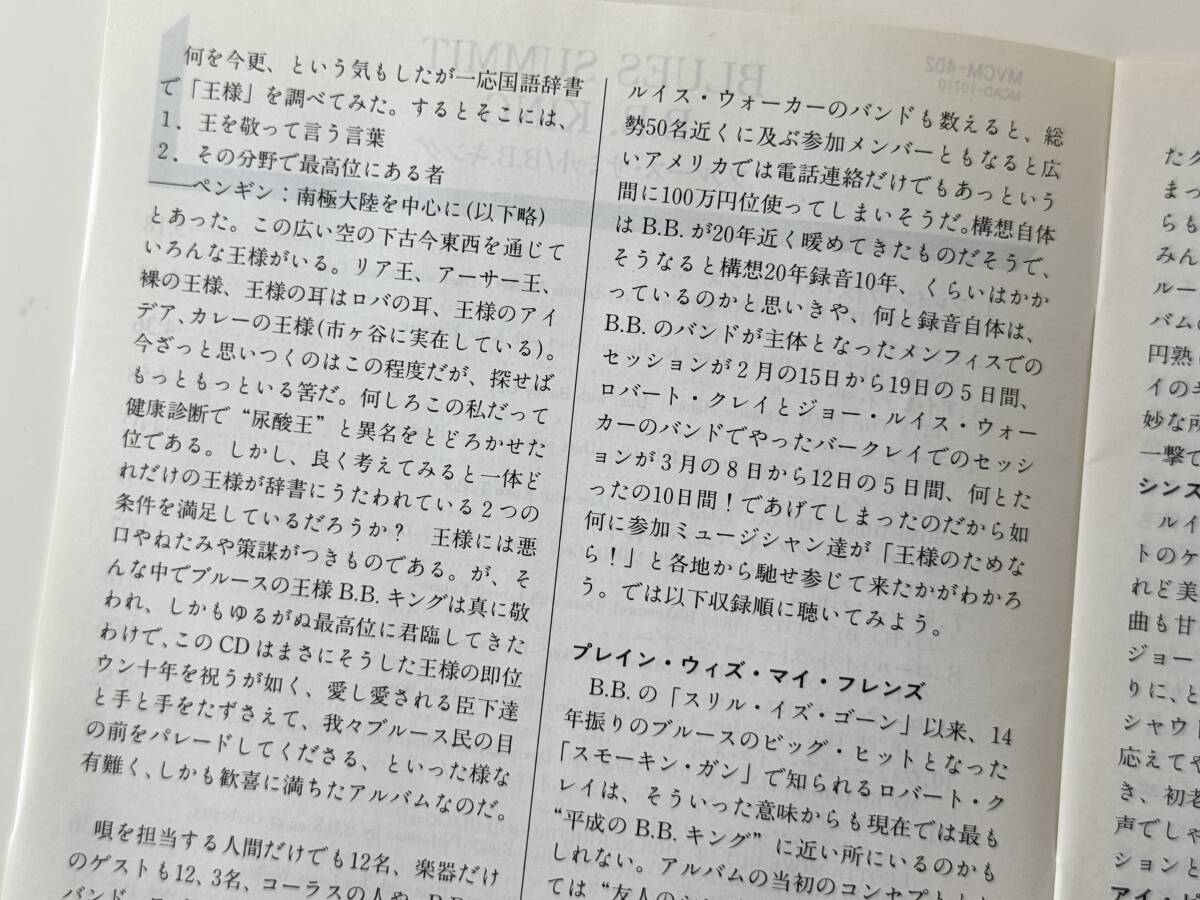 何を今更、という気もしたが一応国語辞書
で「王様」を調べてみた。するとそこには、
1．王を敬って言う言葉
2．その分野で最高位にある者
――ペンギン：南極大陸を中心に(以下略)
とあった。この広い空の下古今東西を通じて
いろんな王様がいる。リア王、アーサー王、
裸の王様、王様の耳はロバの耳、王様のアイ
デア、カレーの王様(市ヶ谷に実在している)。
今ざっと思いつくのはこの程度だが、探せば
もっともっといる筈だ。何しろこの私だって
健康診断で“尿酸王”と異名をとどろかせた
位である。しかし、良く考えてみると一体ど
れだけの王様が辞書にうたわれている2つの
条件を満足しているだろうか?　王様には悪
口やねたみや策謀がつきものである。が、そ
んな中でブルースの王様B.B.キングは真に敬
われ、しかもゆるがぬ最高位に君臨してきた
わけで、このCDはまさにそうした王様の即位
ウン十年を祝うが如く、愛し愛される臣下達
と手と手をたずさえて、我々ブルース民の目
の前をパレードしてくださる、といった様な
有難く、しかも歓喜に満ちたアルバムなのだ。
唄を担当する人間だけでも12名、楽器だけ
のゲストも12、3名、コーラスの人や
バンド
ルイス・ウォーカーのバンドも数えると、総
勢50名近くに及ぶ参加メンバーともなると広
いアメリカでは電話連絡だけでもあっという
間に100万円位使ってしまいそうだ。構想自体
はB.B.が20年近く暖めてきたものだそうで、
そうなると構想20年録音10年、くらいはかか
っているのかと思いきや、何と録音自体は、
B.B.のバンドが主体となったメンフィスでの
セッションが2月の15日から19日の5日間、
ロバート・クレイとジョー・ルイス・ウォー
カーのバンドでやったバークレイでのセッシ
ョンが3月の8日から12日の5日間、何とた
ったの10日間！であげてしまったのだから如
何に参加ミュージシャン達が「王様のためな
ら！」と各地から馳せ参じて来たかがわかろ
う。では以下収録順に聴いてみよう。
プレイン・ウィズ・マイ・フレンズ
B.B.の「スリル・イズ・ゴーン」以来、14
年振りのブルースのビッグ・ヒットとなった
「スモーキン・ガン」で知られるロバート・ク
レイは、そういった意味からも現在では最も
“平成のB.B.キング”に近い所にいるのかも
しれない。アルバムの当初のコンセプトとし
ては“友人の
たク
まっ
らも
みん
ルー
バムの
円熟
イのギ
妙な所
一撃で
シンス
ルイ
トのケ
れど美
曲も甘
ジョー
りに、と
シャウト
応えてや
き、初老
声でしゃ
ションと